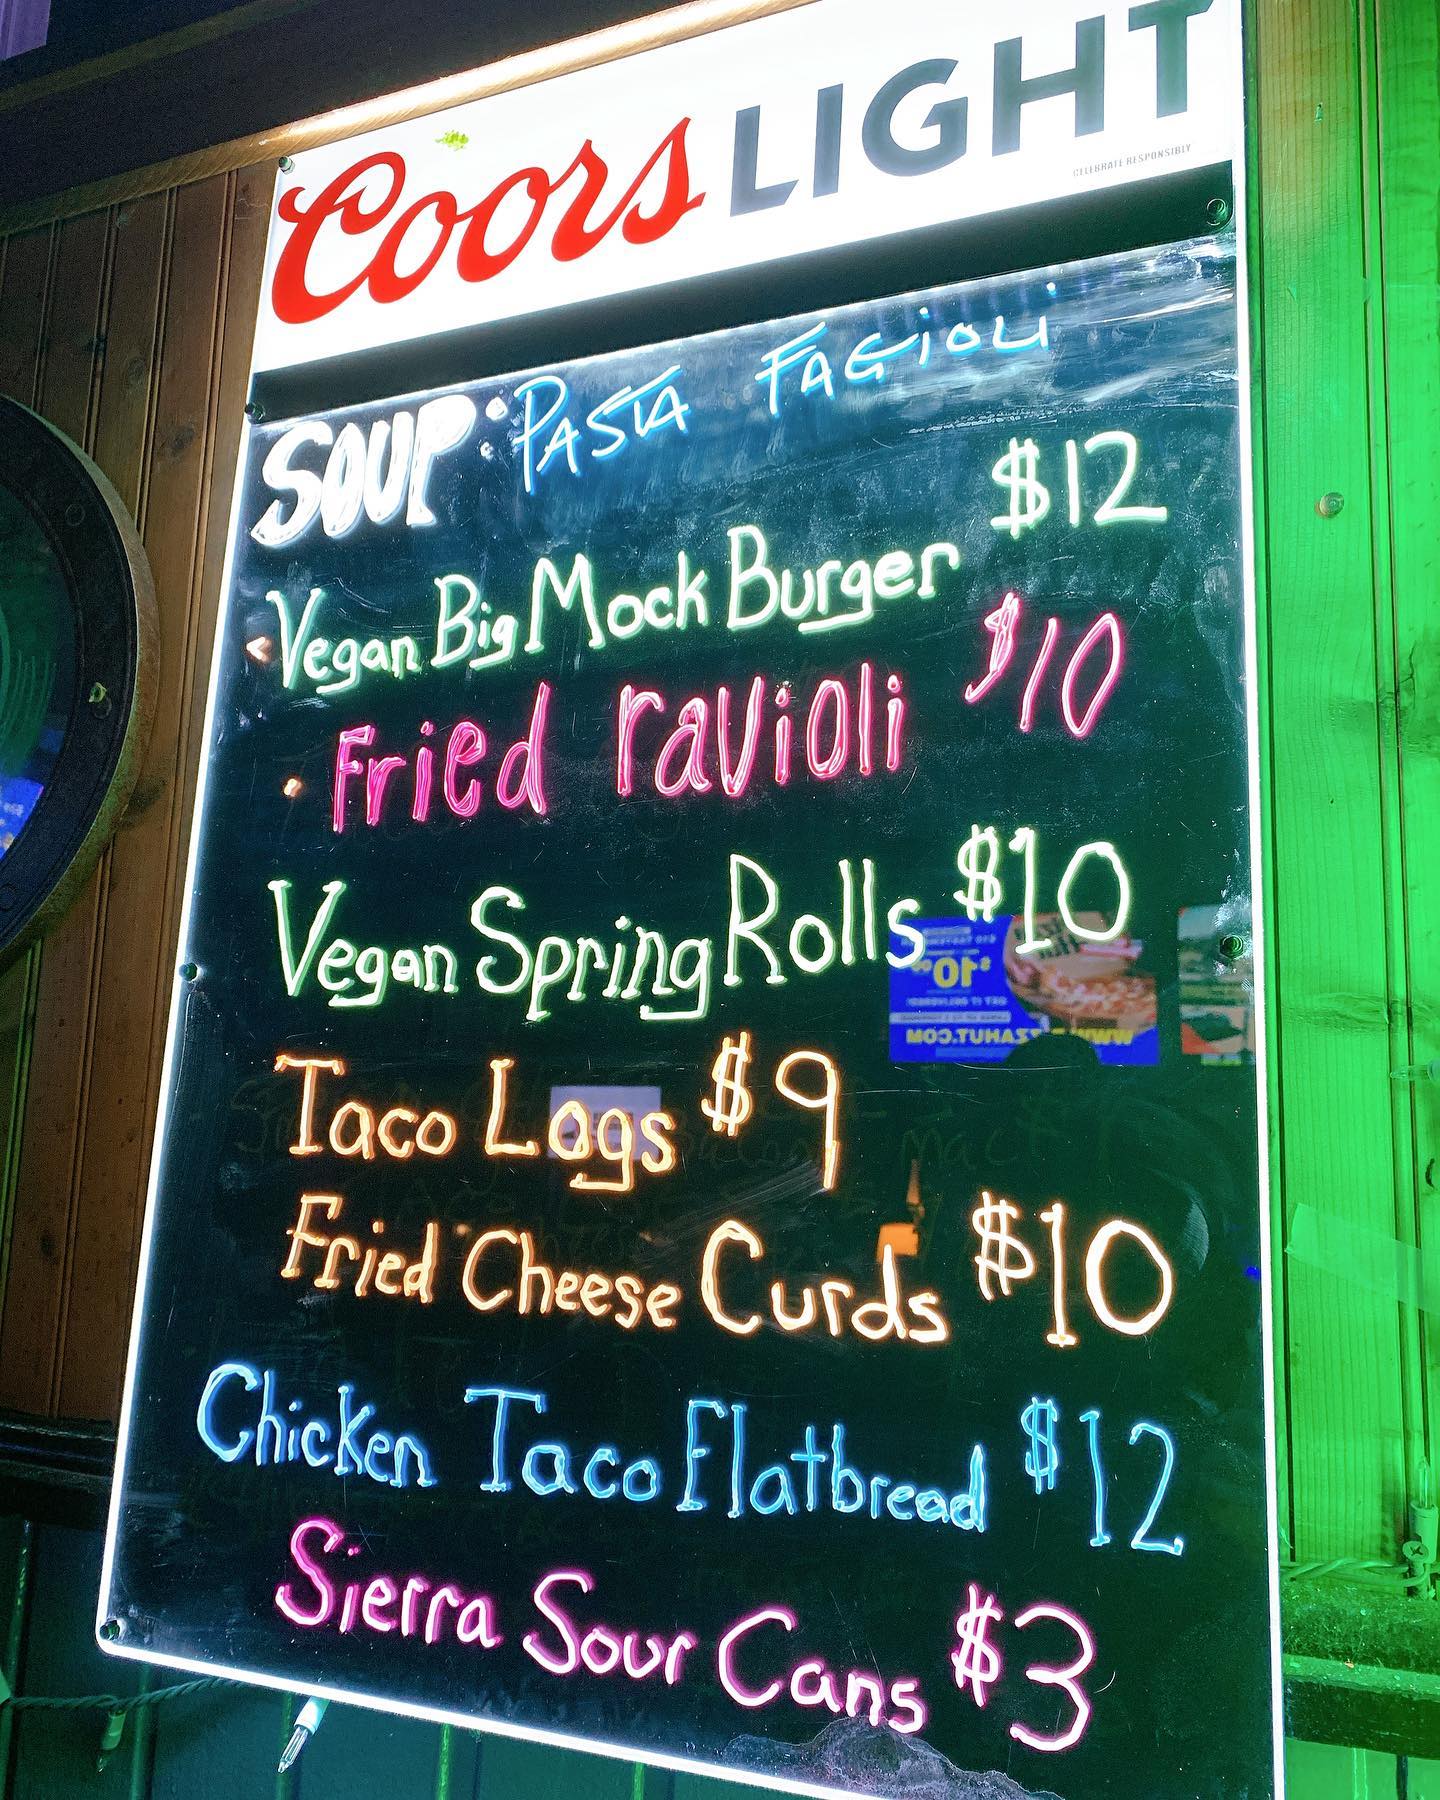 Coors LIGHT
CELEBRATE RESPONSIBLY
SOUP: PASTA FAGIOLI
Vegan Big Mock Burger $12
Fried ravioli $10
Vegan Spring Rolls $10
Taco Logs $9
Fried Cheese Curds $10
Chicken Taco Flatbread $12
Sierra Sour Cans $3